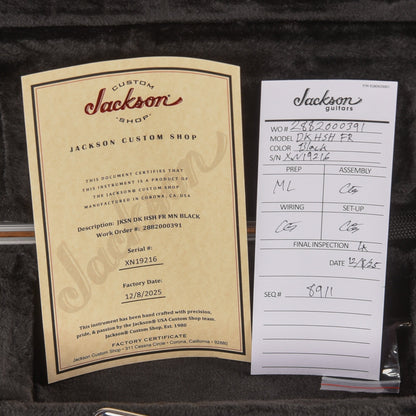 CUSTOM
Jackson
SHOP.
JACKSON CUSTOM SHOP
THIS DOCUMENT CERTIFIES THAT
THIS INSTRUMENT IS A PRODUCT OF
THE JACKSON® CUSTOM SHOP
MANUFACTURED IN CORONA, CA, USA
Description: JKSN DK HSH FR MN BLACK
Work Order #: 2882000391
Serial #:
XN19216
Factory Date:
12/8/2025
This instrument has been hand crafted with precision,
pride, & passion by the Jackson® USA Custom Shop team.
Jackson® Custom Shop, Est. 1980
FACTORY CERTIFICATE
Jackson Custom Shop • 311 Cessna Circle • Corona, California • 92880
Jackson
guitars
WO# 2882000391
MODEL DK HSH FR
COLOR Black
S/N XN19216
PREP ASSEMBLY
ML
WIRING SET-UP
FINAL INSPECTION
DATE 12/8/25
SEQ# 8911